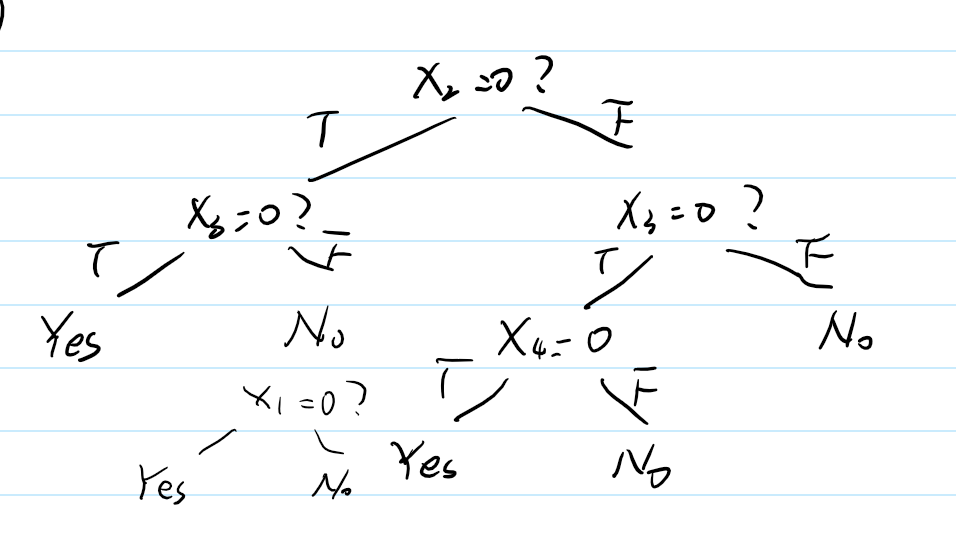 )
X₂ =0 ?
T F
X₃=0? X₃=0 ?
T F T F
Yes No X₄=0 No
T F
X₁=0?
Yes No Yes No